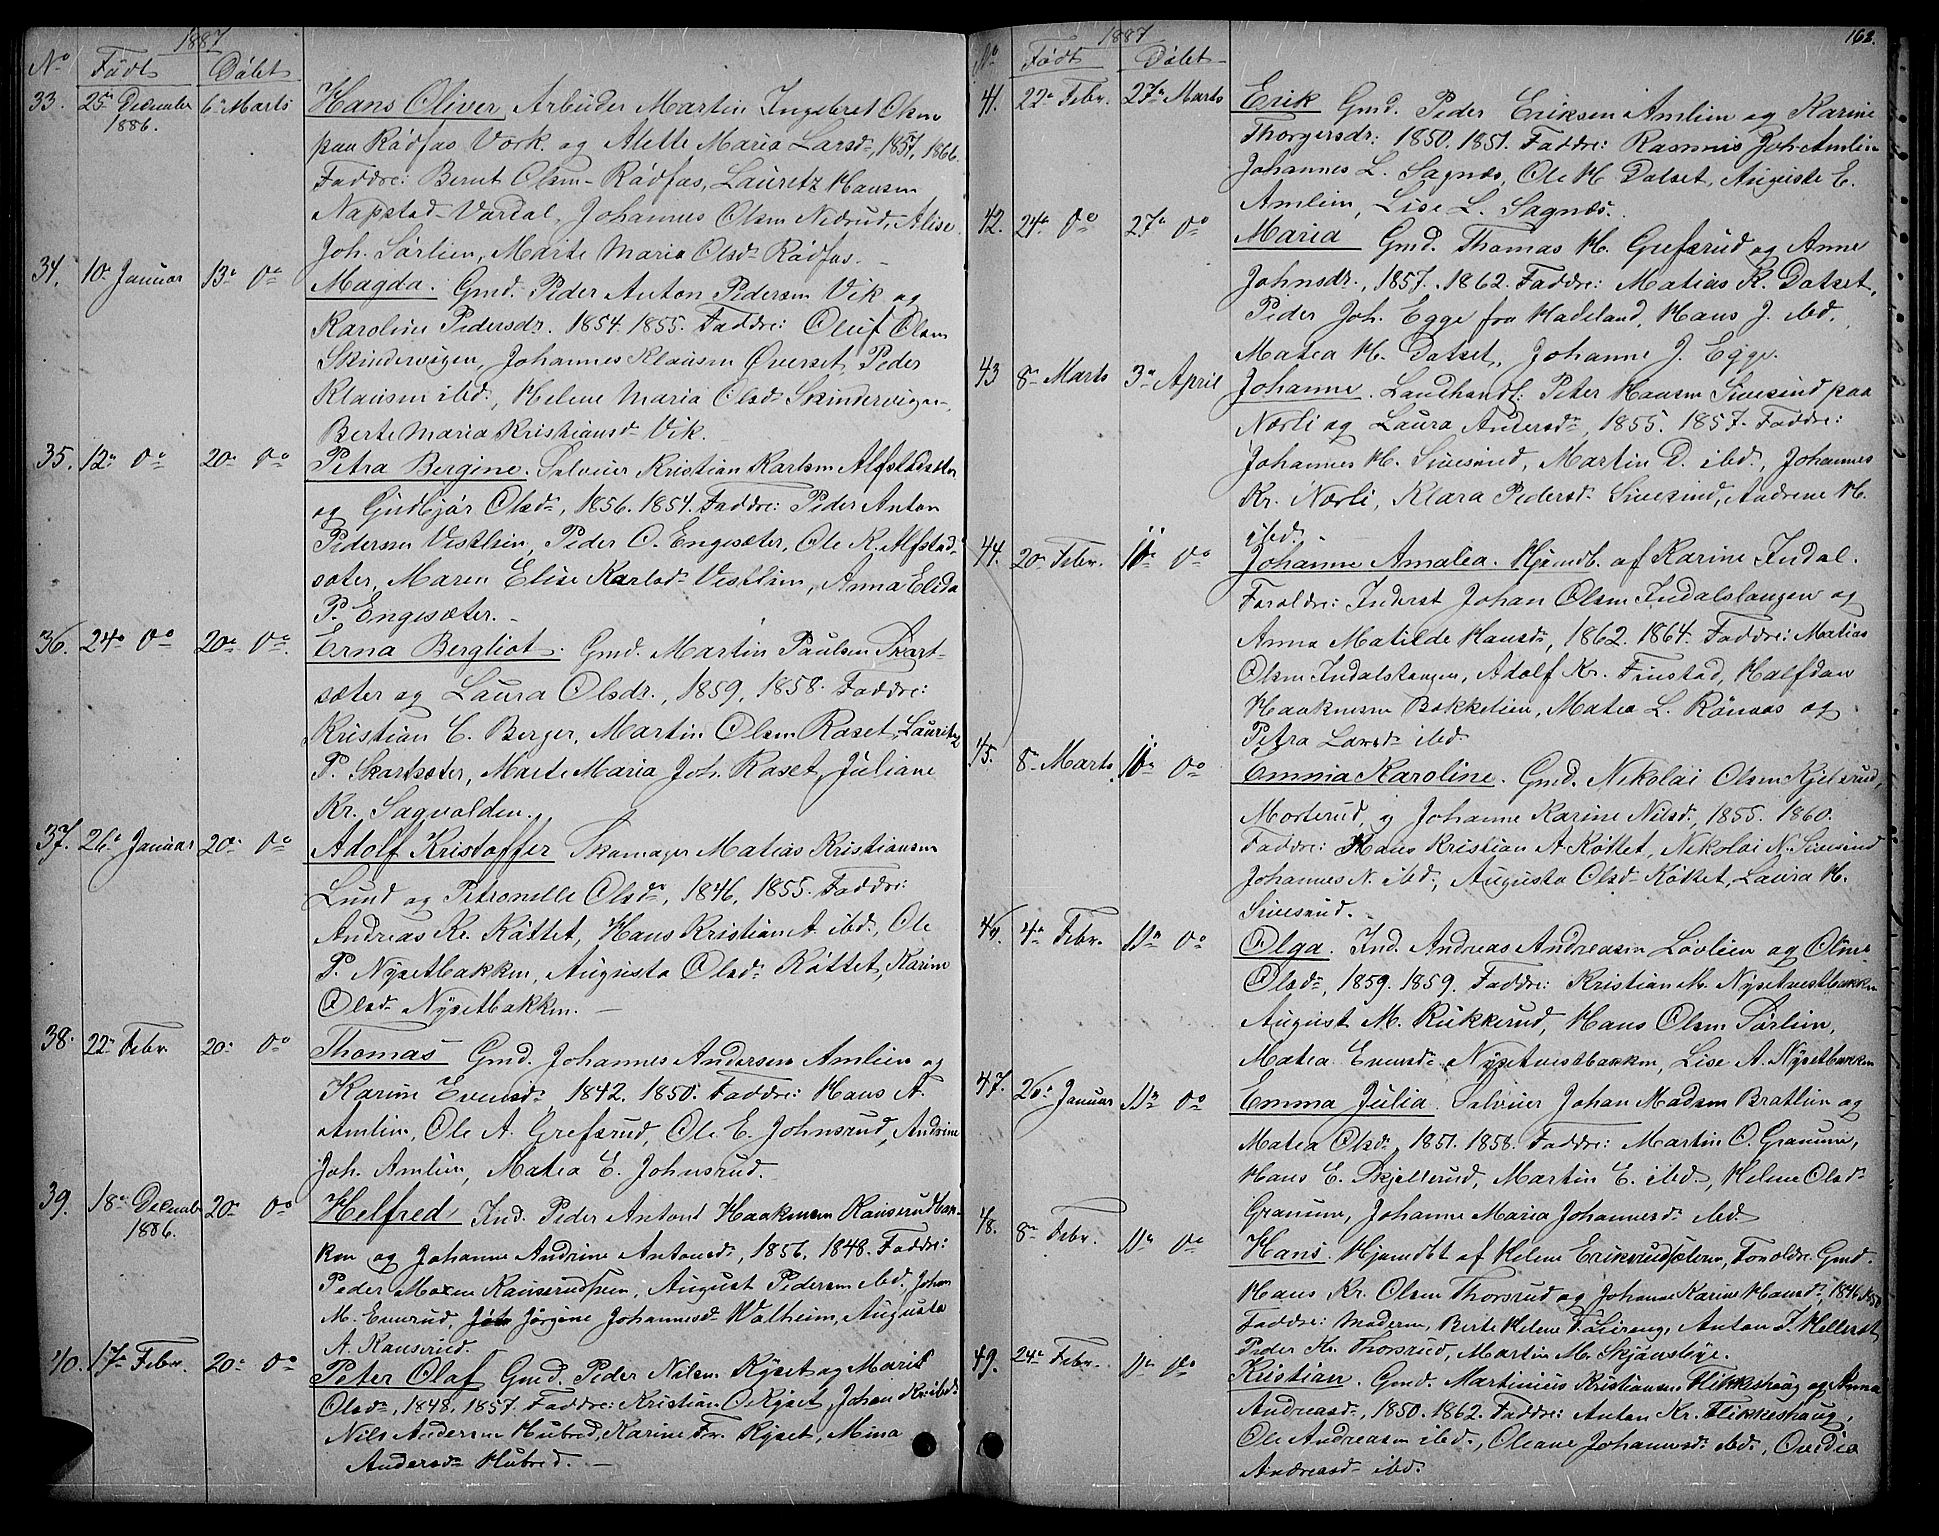 1887
No Födt Döbt
33. 25de December 6te Marts Hans Oliver, Arbeider Martin Ingebret Olsen
1886. paa Rödfos Værk og Alette Maria Larsdr, 1857, 1866.
Faddre: Bernt Olsen Rödfos, Lauretz Hansen
Napstad Vardal, Johannes Olsen Nedrud, Alise
Joh. Sørlien, Marte Maria Olsdr Rødfos. —
34. 10. Januar 13de Do Magda. Gmd. Peder Anton Pedersen Vik og
Karoline Pedersdr. 1854. 1855. Faddre: Oluf Olsen
Skindervigen, Johannes Klausen Øverset, Peder
Klausen ibd., Helene Maria Olsdr Skindervigen,
Berte Maria Kristiansdr Vik.
35. 12. Do 20. Do Petra Bergine. Selveier Kristian Karlsen Alfstadsæter
og Gudbjör Olsdr, 1856. 1854. Faddre: Peder Anton
Pedersen Vestlien, Peder O. Engesæter, Ole K. Alfstad-
sæter, Maren Elise Karlsdr Vestlien, Anna Elida
P. Engesæter. —
36. 24de Do 20de Do Erna Bergliot. Gmd. Martin Paulsen Skart-
sæter og Laura Olsdr., 1859, 1858. Faddre:
Kristian C. Berger, Martin Olsen Raset, Lauritz
P. Skartsæter, Marte Maria Joh. Raset, Juliane
Kr. Sagvolden.
37. 26de Januar 20de Do Adolf Kristoffer Skomager Matias Kristiansen
Lund og Petronelle Olsdr, 1846, 1855. Faddre:
Andreas Kr. Kattet, Hans Kristian A. ibd., Ole
P. Nysetbakken, Augusta Olsdr Kottet, Karine
Olsdr Nysetbakken. —
38. 22de Febr. 20de Do Thomas Gmd. Johannes Andersen Amlien og
Karine Evensdr, 1842. 1850. Faddre: Hans A.
Amlien, Ole A. Grefsrud, Ole E. Johnsrud, Andrine
Joh. Amlien, Matea E. Johnsrud.
39. 18de December 20de Do Helfred Ind. Peder Anton Haakensen Kauserudbak-
1886. ken og Johanne Andrine Antonsdr, 1856. 1848. Faddre:
Peder Kauserud August Pedersen ibd., Johan
M. Jörgine Johannesdr Walheim, Augusta
A. Kauserud.
40. 17de Febr. 20de Do Peter Olaf Gmd. Peder Nilsen Kyset og Marie
Olsdr, 1848, 1857. Faddre: Kristian O. Kyset, Johan Kr. ibd.
Nils Andersen Hubred, Karine Fr. Kyset, Mina
Andersdr Hubred. —
1887 162.
No Födt Döbt
41. 22de Febr. 27de Marts Erik Gmd. Peder Eriksen Amlien og Karine
Thorgersdr: 1850. 1851. Faddre: Rasmus Joh. Amlien
Johannes L. Sagnæs, Ole H. Datset, Auguste E.
Amlien, Lise L. Sagnæs.
42. 24de Do 27de Do Maria Gmd. Thomas H. Grefsrud og Anne
Johnsdr., 1857. 1862. Faddre: Matias K. Datset,
Peder Joh. Egge fra Hadeland, Hans J. ibd.,
Matea H. Datset, Johanne J. Egge.
43 8de Marts 3de April Johanne. Landhandl: Peter Hansen Sivesind paa
Nærli og Laura Andersdr, 1855. 1857. Faddre:
Johannes H. Sivesind, Martin D. ibd., Johannes
Kr. Nærli, Klara Pedersdr Sivesind, Andrene H.
ibd.
44. 20de Febr. 11te Do Johanne Amalea. Hjemdb. af Karine Indal.
Foraldre: Inderst Johan Olsen Indalslangen og
Anna Matilde Hansdr, 1862. 1864. Faddre: Matias
Olsen Indalstangen, Adolf Kr. Finstad, Halfdan
Haakensen Bakkelien, Matea L. Rönnæs og
Petra Larsdr ibd.
45. 8de Marts 11te Do Emma Karoline. Gmd. Nikolai Olsen Kjelsrud,
Morterud, og Johanne Karine Nilsdr, 1855. 1860.
Faddre: Hans Kristian A. Kottet, Nikolai N. Sivesind
Johannes N. ibd., Augusta Olsdr Kottet, Laura H.
Sivesind.
46. 4de Febr. Do Do Olga. Ind. Andreas Andreassen Lövlien og Oline
Olsdr, 1859. 1859. Faddre: Kristian M. Nysetvestbakken
August M. Rukkerud, Hans Olsen Sørlien,
Matea Evensdr Nysetvestbakken, Lise A. Nysetbakken
47. 26de Januar Do Do Emma Julia. Selveier Johan Madsen Bratlien og
Matea Olsdr, 1851. 1858. Faddre: Martin O. Granum,
Hans E. Skjellerud, Martin E. ibd., Helene Olsdr
Granum, Johanne Maria Johannesdr ibd.
48. 8de Febr. Do Do Hans. Hjemdbt af Helene Eriksrud Foraldre Gmd.
Hans Kr. Olsen Thorsrud og Johanne Karine Hansdr, 1846. 1850
Faddre: Moderen, Berte Helene Anton J. Hellerset,
Peder Kr. Thorsrud, Martin M.
49. 24de Febr. Do Do Kristian. Gmd. Martinius Kristiansen Flikkeshaug og Anna
Andreasdr, 1850. 1862. Faddre: Anton Kr. Flikkeshaug,
Ole Andreassen ibd., Oleane Johannesdr ibd., Ovedia
Andreasdr ibd.